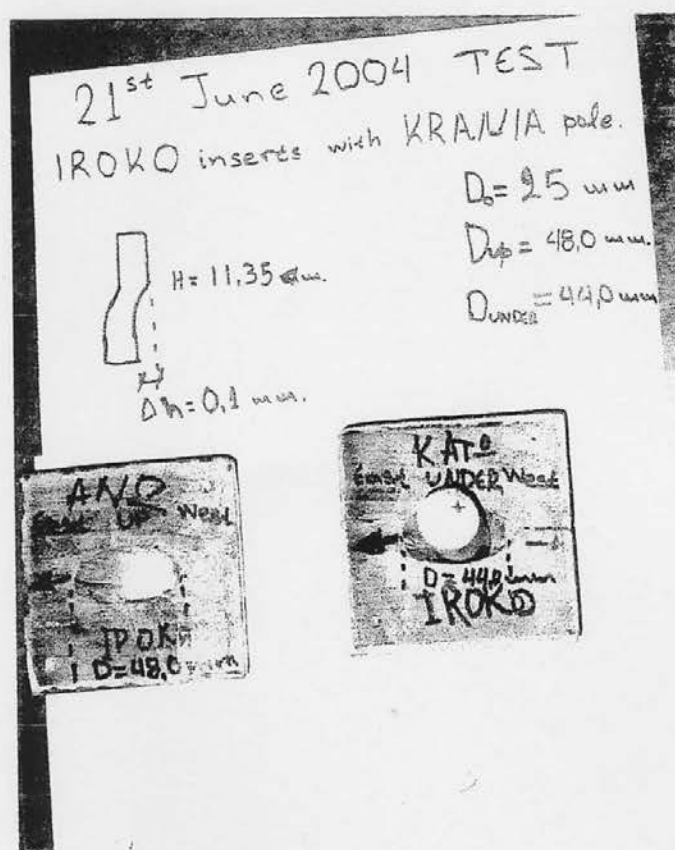 21st June 2004 TEST
IROKO inserts with KRANIA pole.
D₀= 25 mm
Dup = 48,0 mm.
DUNDER = 44,0 mm
H= 11,35 mm.
Δh= 0,1 mm.
ANO
East UP West
IROKO
D=48,0 mm
KATO
East UNDER West
D=44,0 mm
IROKO